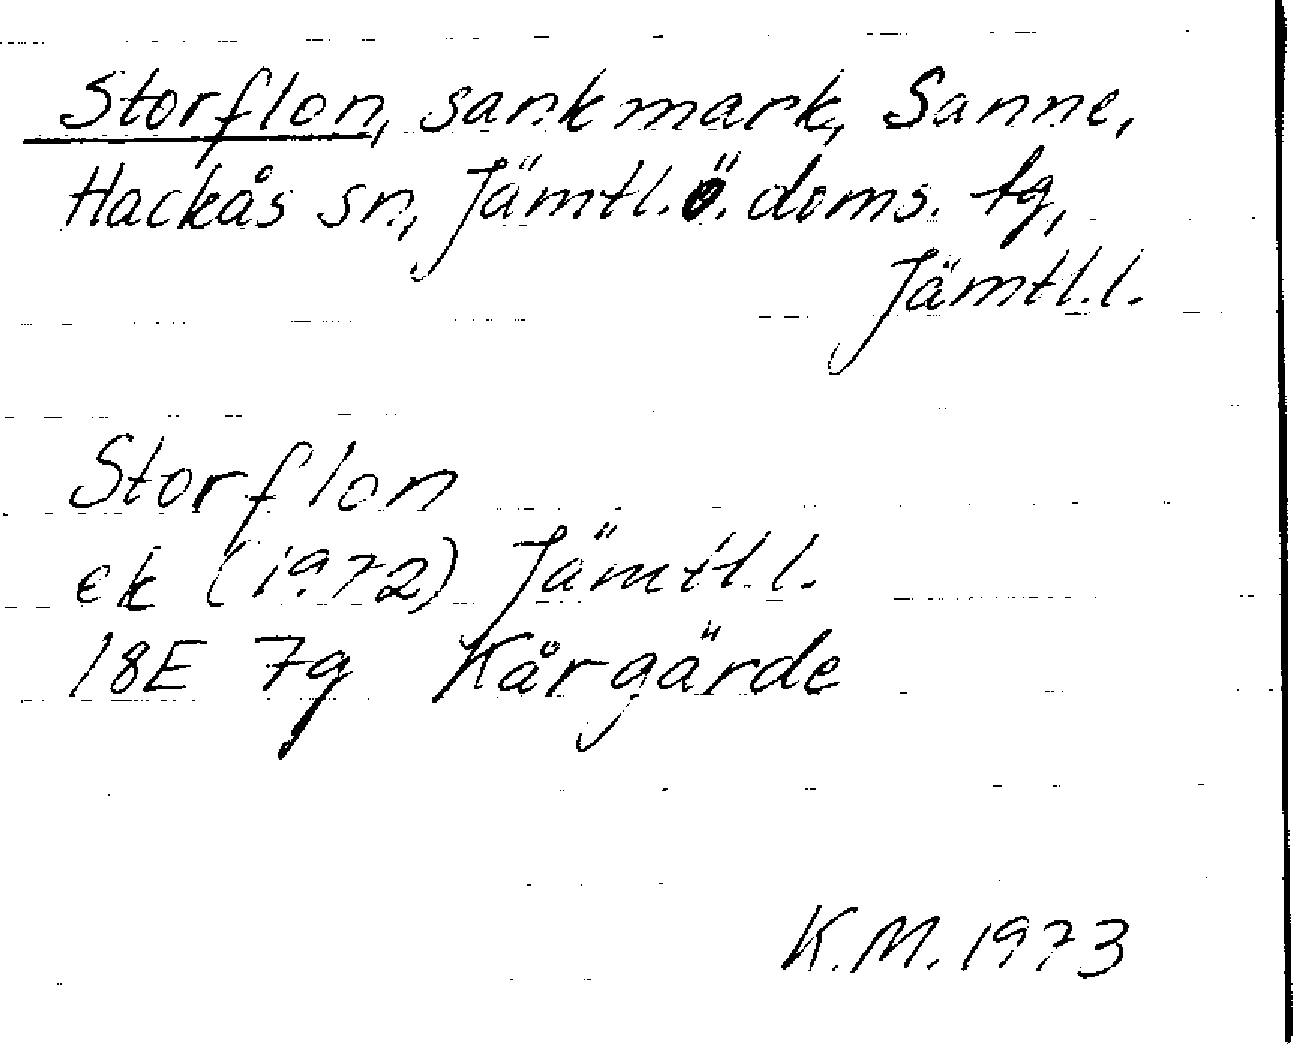 Storflon, sankmark, Sanne,
Hackås sn, Jämtl.ö.doms. tg,
Jämtl.l.
Storflon
ek (1972) Jämtl.l.
18E 7g Kårgärde
K.M. 1973